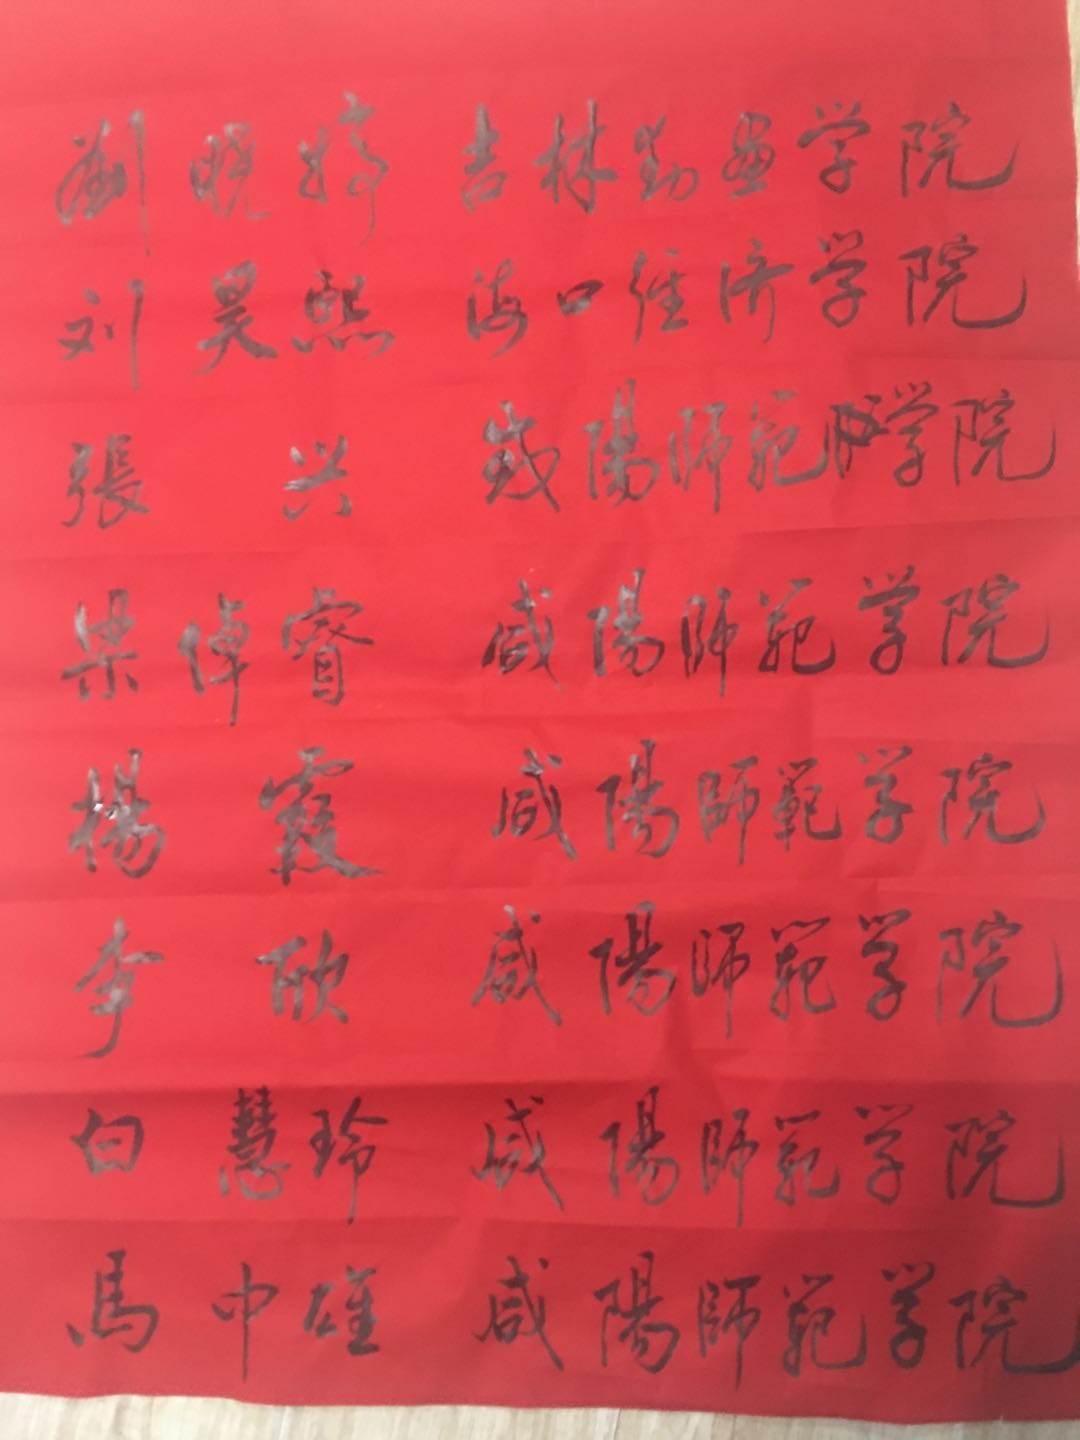 劉晓婷 吉林動画学院
刘昊熙 海口经济学院
張兴 咸陽師範学院
梁倬睿 咸陽師範学院
楊霞 咸陽師範学院
李欣 咸陽師範学院
白慧玲 咸陽師範学院
馬中雄 咸陽師範学院